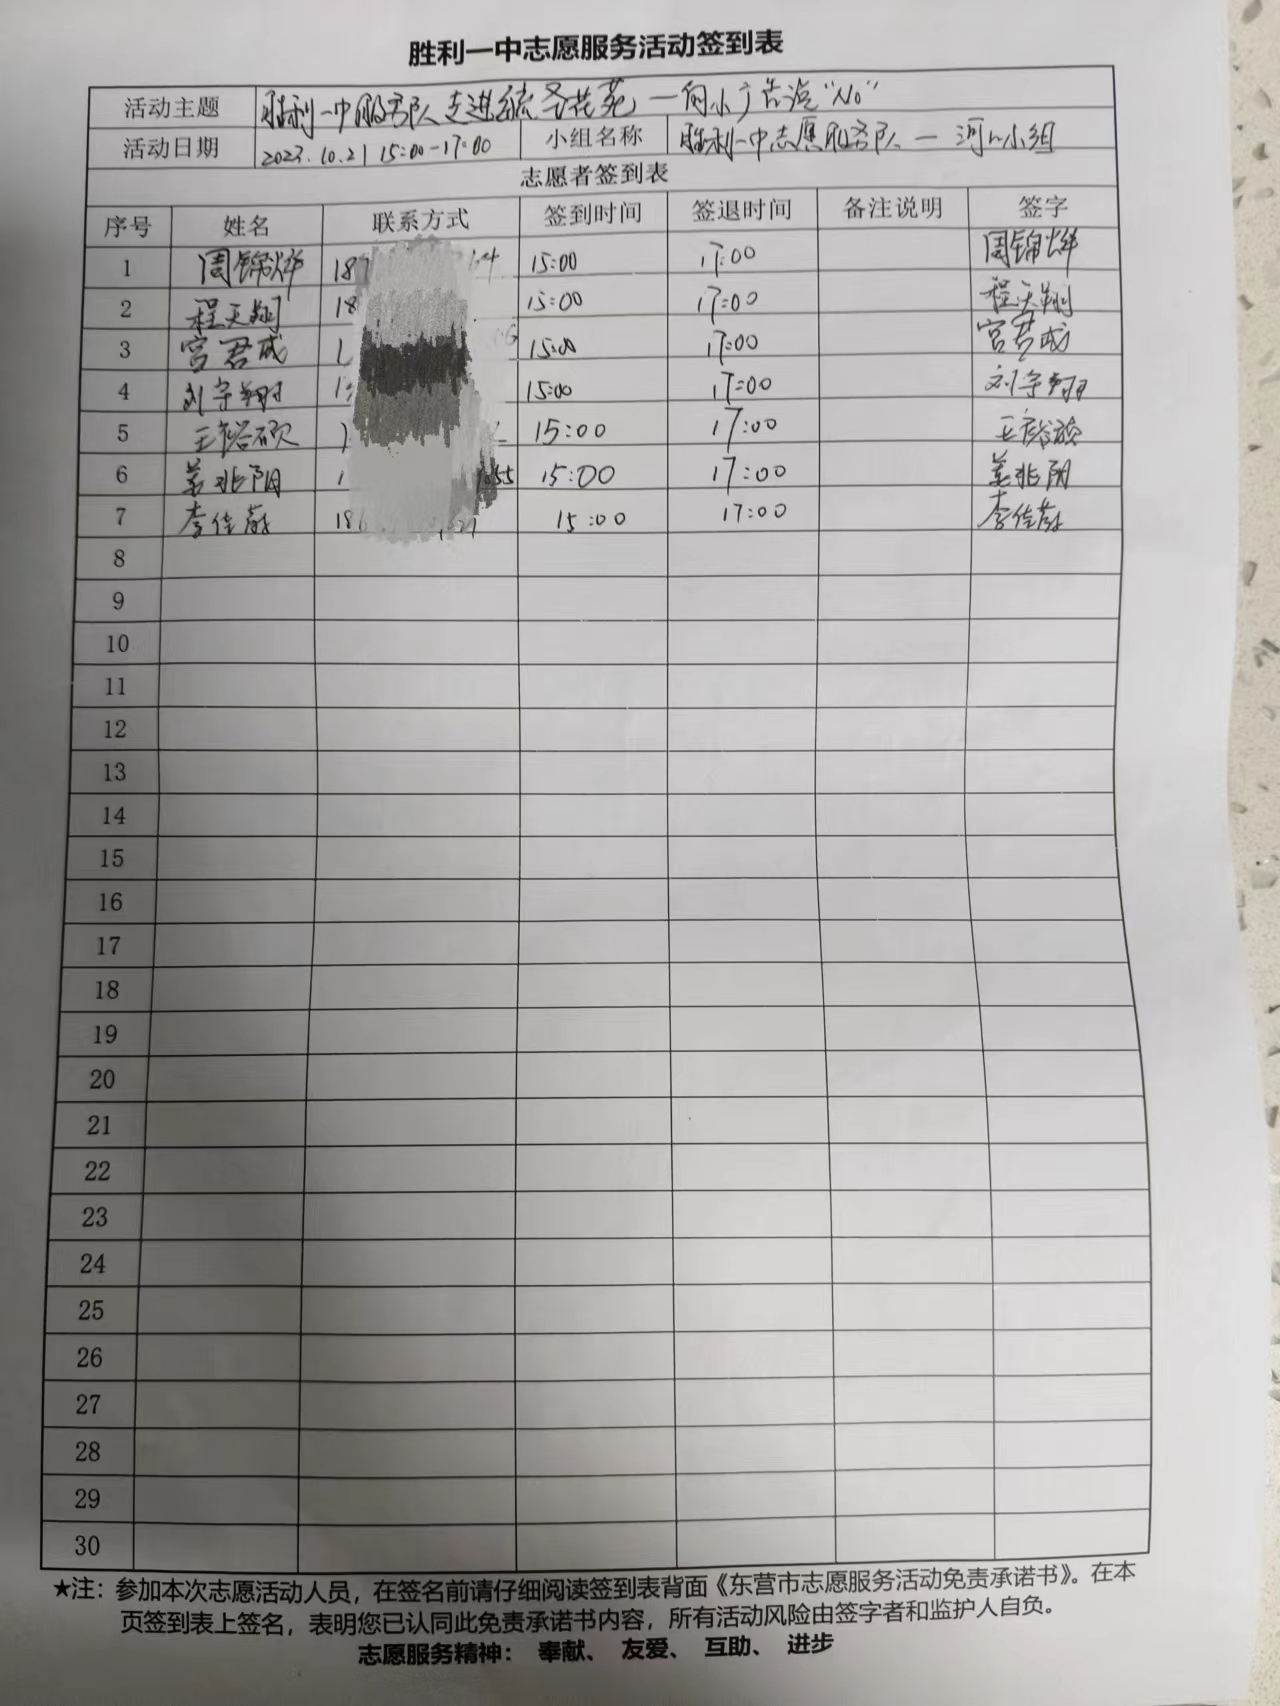 胜利一中志愿服务活动签到表
活动主题 胜利一中服务队走进 圣花苑—向小广告说“No”
活动日期 2023.10.21 15:00-17:00 小组名称 胜利一中志愿服务队— 河口小组
志愿者签到表
序号 姓名 联系方式 签到时间 签退时间 备注说明 签字
1 周锦烨 187 64 15:00 17:00 周锦烨
2 程天翔 18 15:00 17:00 程天翔
3 宫君成 1 15:00 17:00 宫君成
4 刘宇翔 1 15:00 17:00 刘宇翔
5 王裕硕 1 15:00 17:00 王裕硕
6 姜兆阳 1 55 15:00 17:00 姜兆阳
7 李佳蔚 18 15:00 17:00 李佳蔚
8
9
10
11
12
13
14
15
16
17
18
19
20
21
22
23
24
25
26
27
28
29
30
★注：参加本次志愿活动人员，在签名前请仔细阅读签到表背面《东营市志愿服务活动免责承诺书》。在本
页签到表上签名，表明您已认同此免责承诺书内容，所有活动风险由签字者和监护人自负。
志愿服务精神： 奉献、 友爱、 互助、 进步